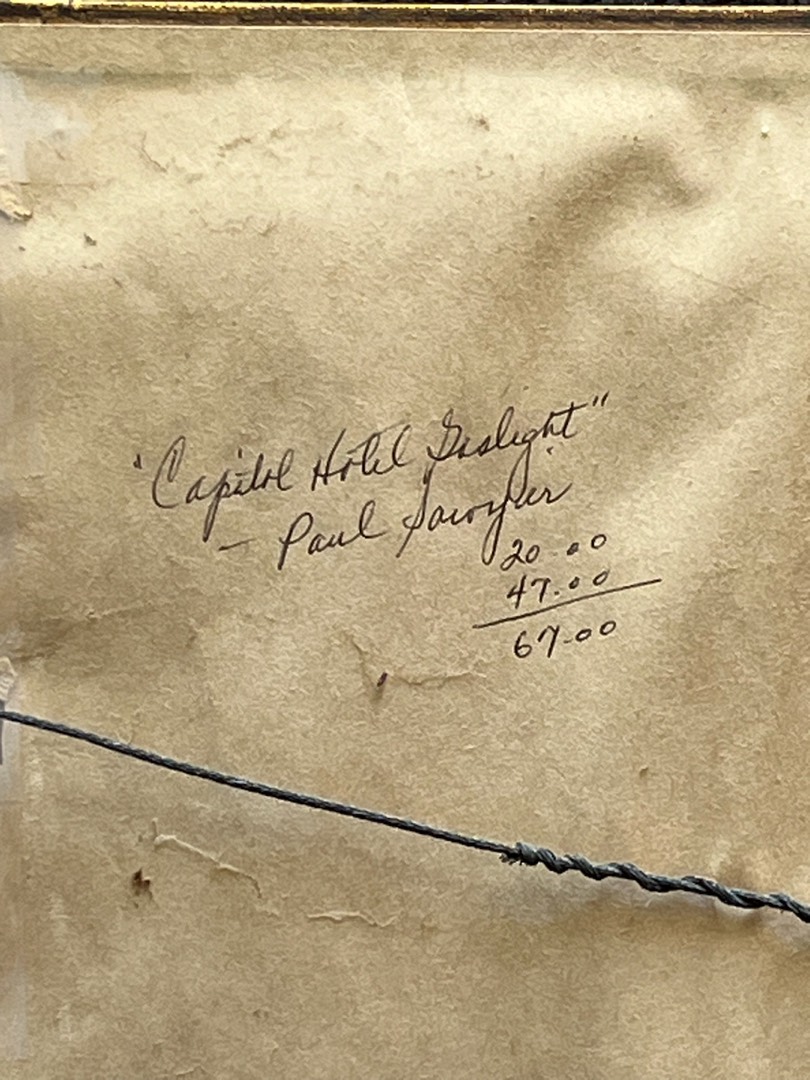 "Capitol Hotel Gaslight"
- Paul Sawyier
20.00
47.00
67.00